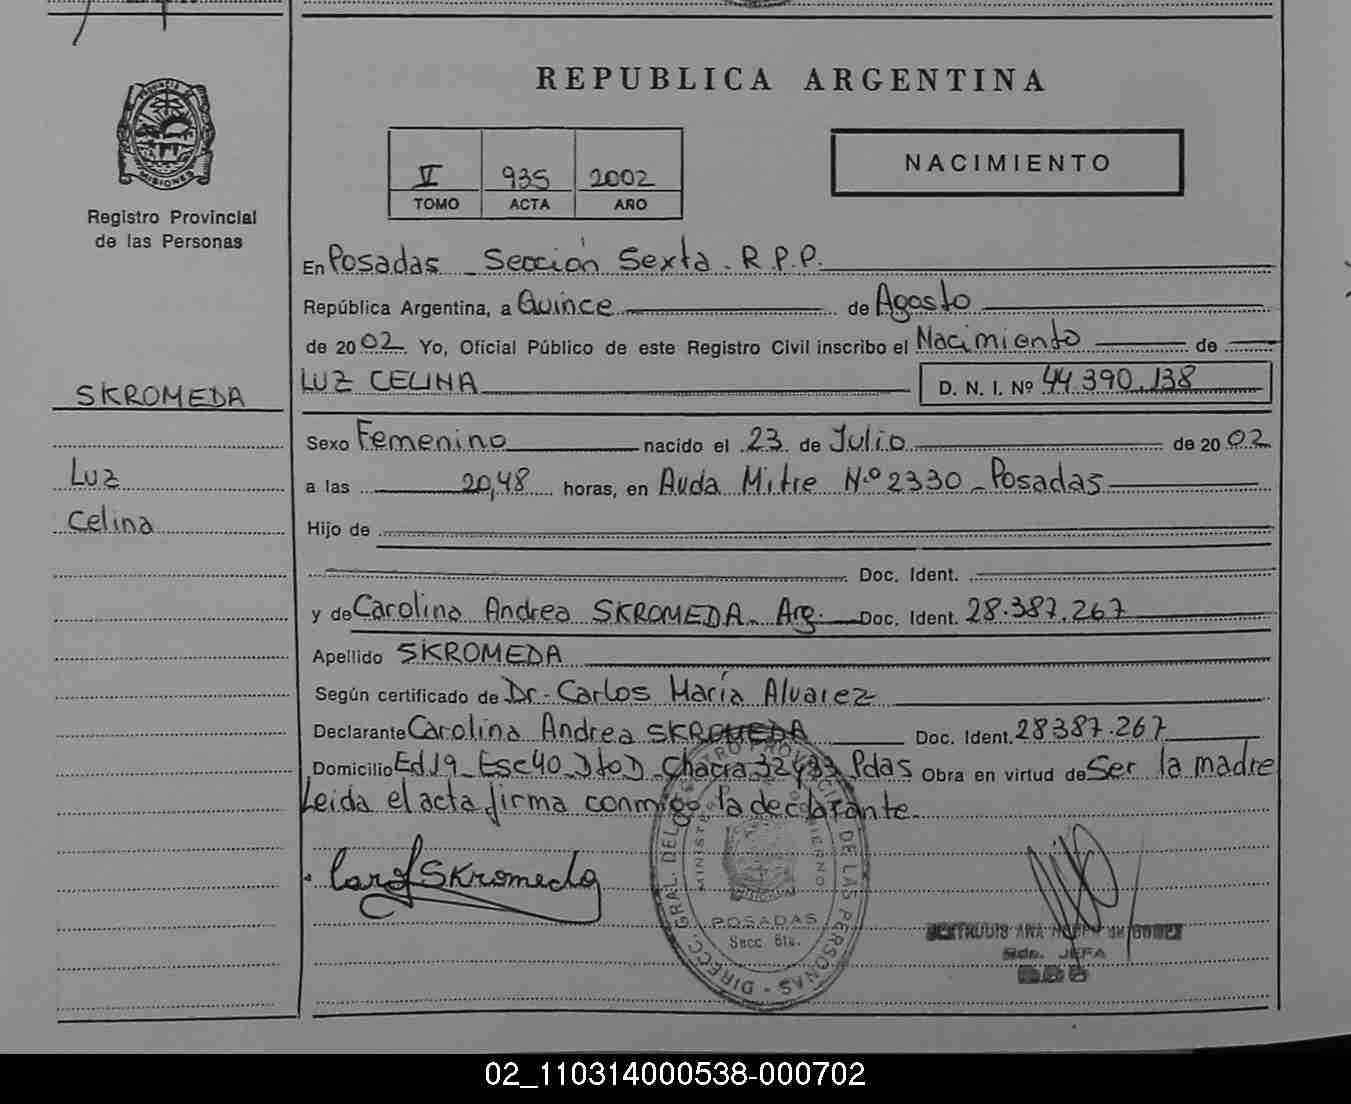 REPUBLICA ARGENTINA
PROVINCIA DE
MISIONES
Registro Provincial
de las Personas
V 935 2002
TOMO ACTA AÑO
NACIMIENTO
En Posadas _ Sección Sexta. R.P.P.
República Argentina, a Quince de Agosto
de 2002 Yo, Oficial Público de este Registro Civil inscribo el Nacimiento de
SKROMEDA
LUZ CELINA D. N. I. Nº 44.390.138
Sexo Femenino nacido el 23 de Julio de 2002
Luz
a las 20,48 horas, en Avda Mitre Nº 2330 _ Posadas
Celina
Hijo de
Doc. Ident.
y de Carolina Andrea SKROMEDA. Arg. Doc. Ident. 28.387.267
Apellido SKROMEDA
Según certificado de Dr. Carlos María Alvarez
Declarante Carolina Andrea SKROMEDA Doc. Ident. 28387.267
Domicilio Ed J9 _ Esc 40 _ Dto D _ Chacra 32 y 33 Pdas Obra en virtud de Ser la madre
Leida el acta firma conmigo la declarante.
Skromeda
DIRECC. GRAL. DEL REGISTRO PROVINCIAL DE LAS PERSONAS
POSADAS
Secc. 6ta.
JEFA
02_110314000538-000702